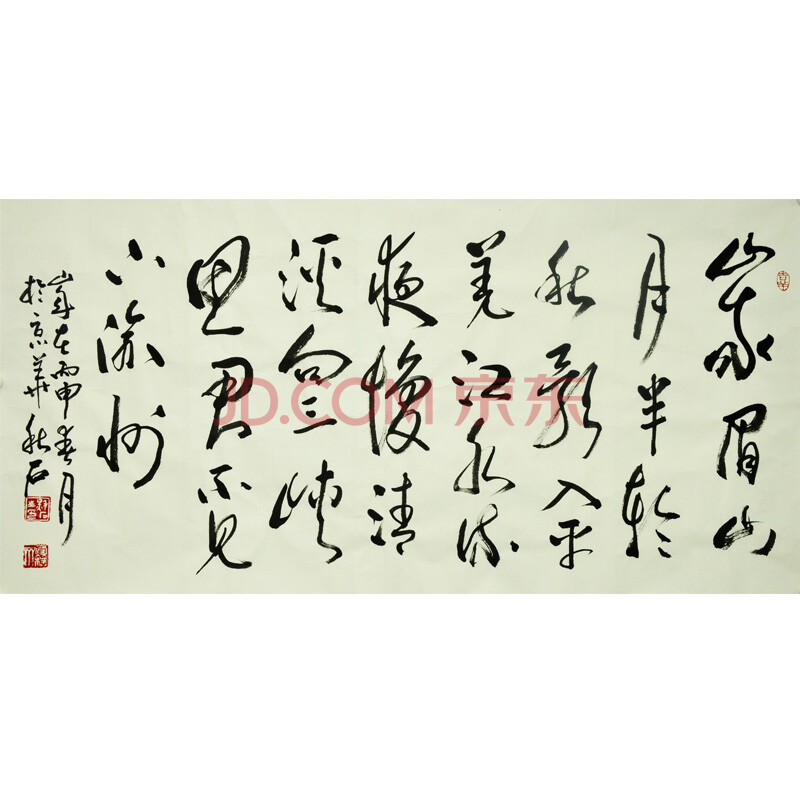 峩眉山
月半輪
秋影入平
羌江水流
夜發清
溪向三峽
思君不見
下渝州
歲在丙申春月
於京華秋石
JD.COM 京东